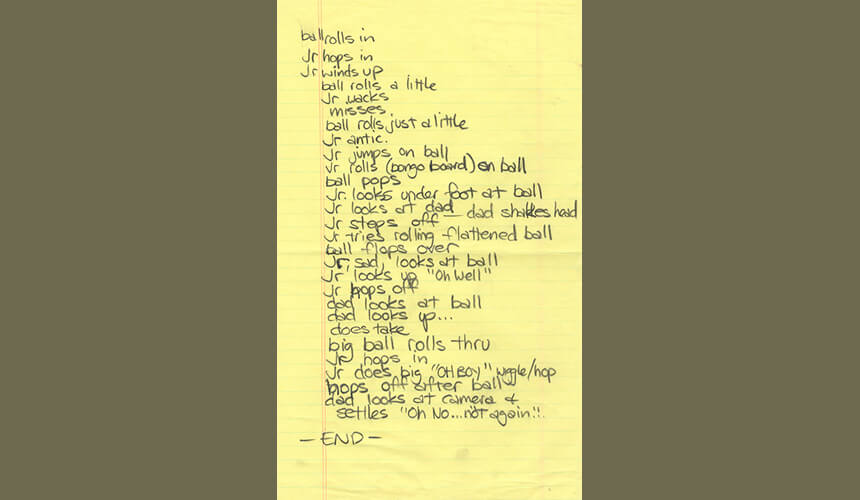 ball rolls in
Jr hops in
Jr winds up
ball rolls a little
Jr wacks
misses
ball rolls just a little
Jr antic.
Jr jumps on ball
Jr rolls (bongo board) on ball
ball pops
Jr. looks under foot at ball
Jr looks at dad — dad shakes head
Jr steps off
Jr tries rolling flattened ball
ball flops over
Jr, sad, looks at ball
Jr looks up "Oh Well"
Jr hops off
dad looks at ball
dad looks up...
does take
big ball rolls thru
Jr hops in
Jr does big "OH BOY" wiggle/hop
hops off after ball
dad looks at camera &
settles "Oh No...not again!!
— END —